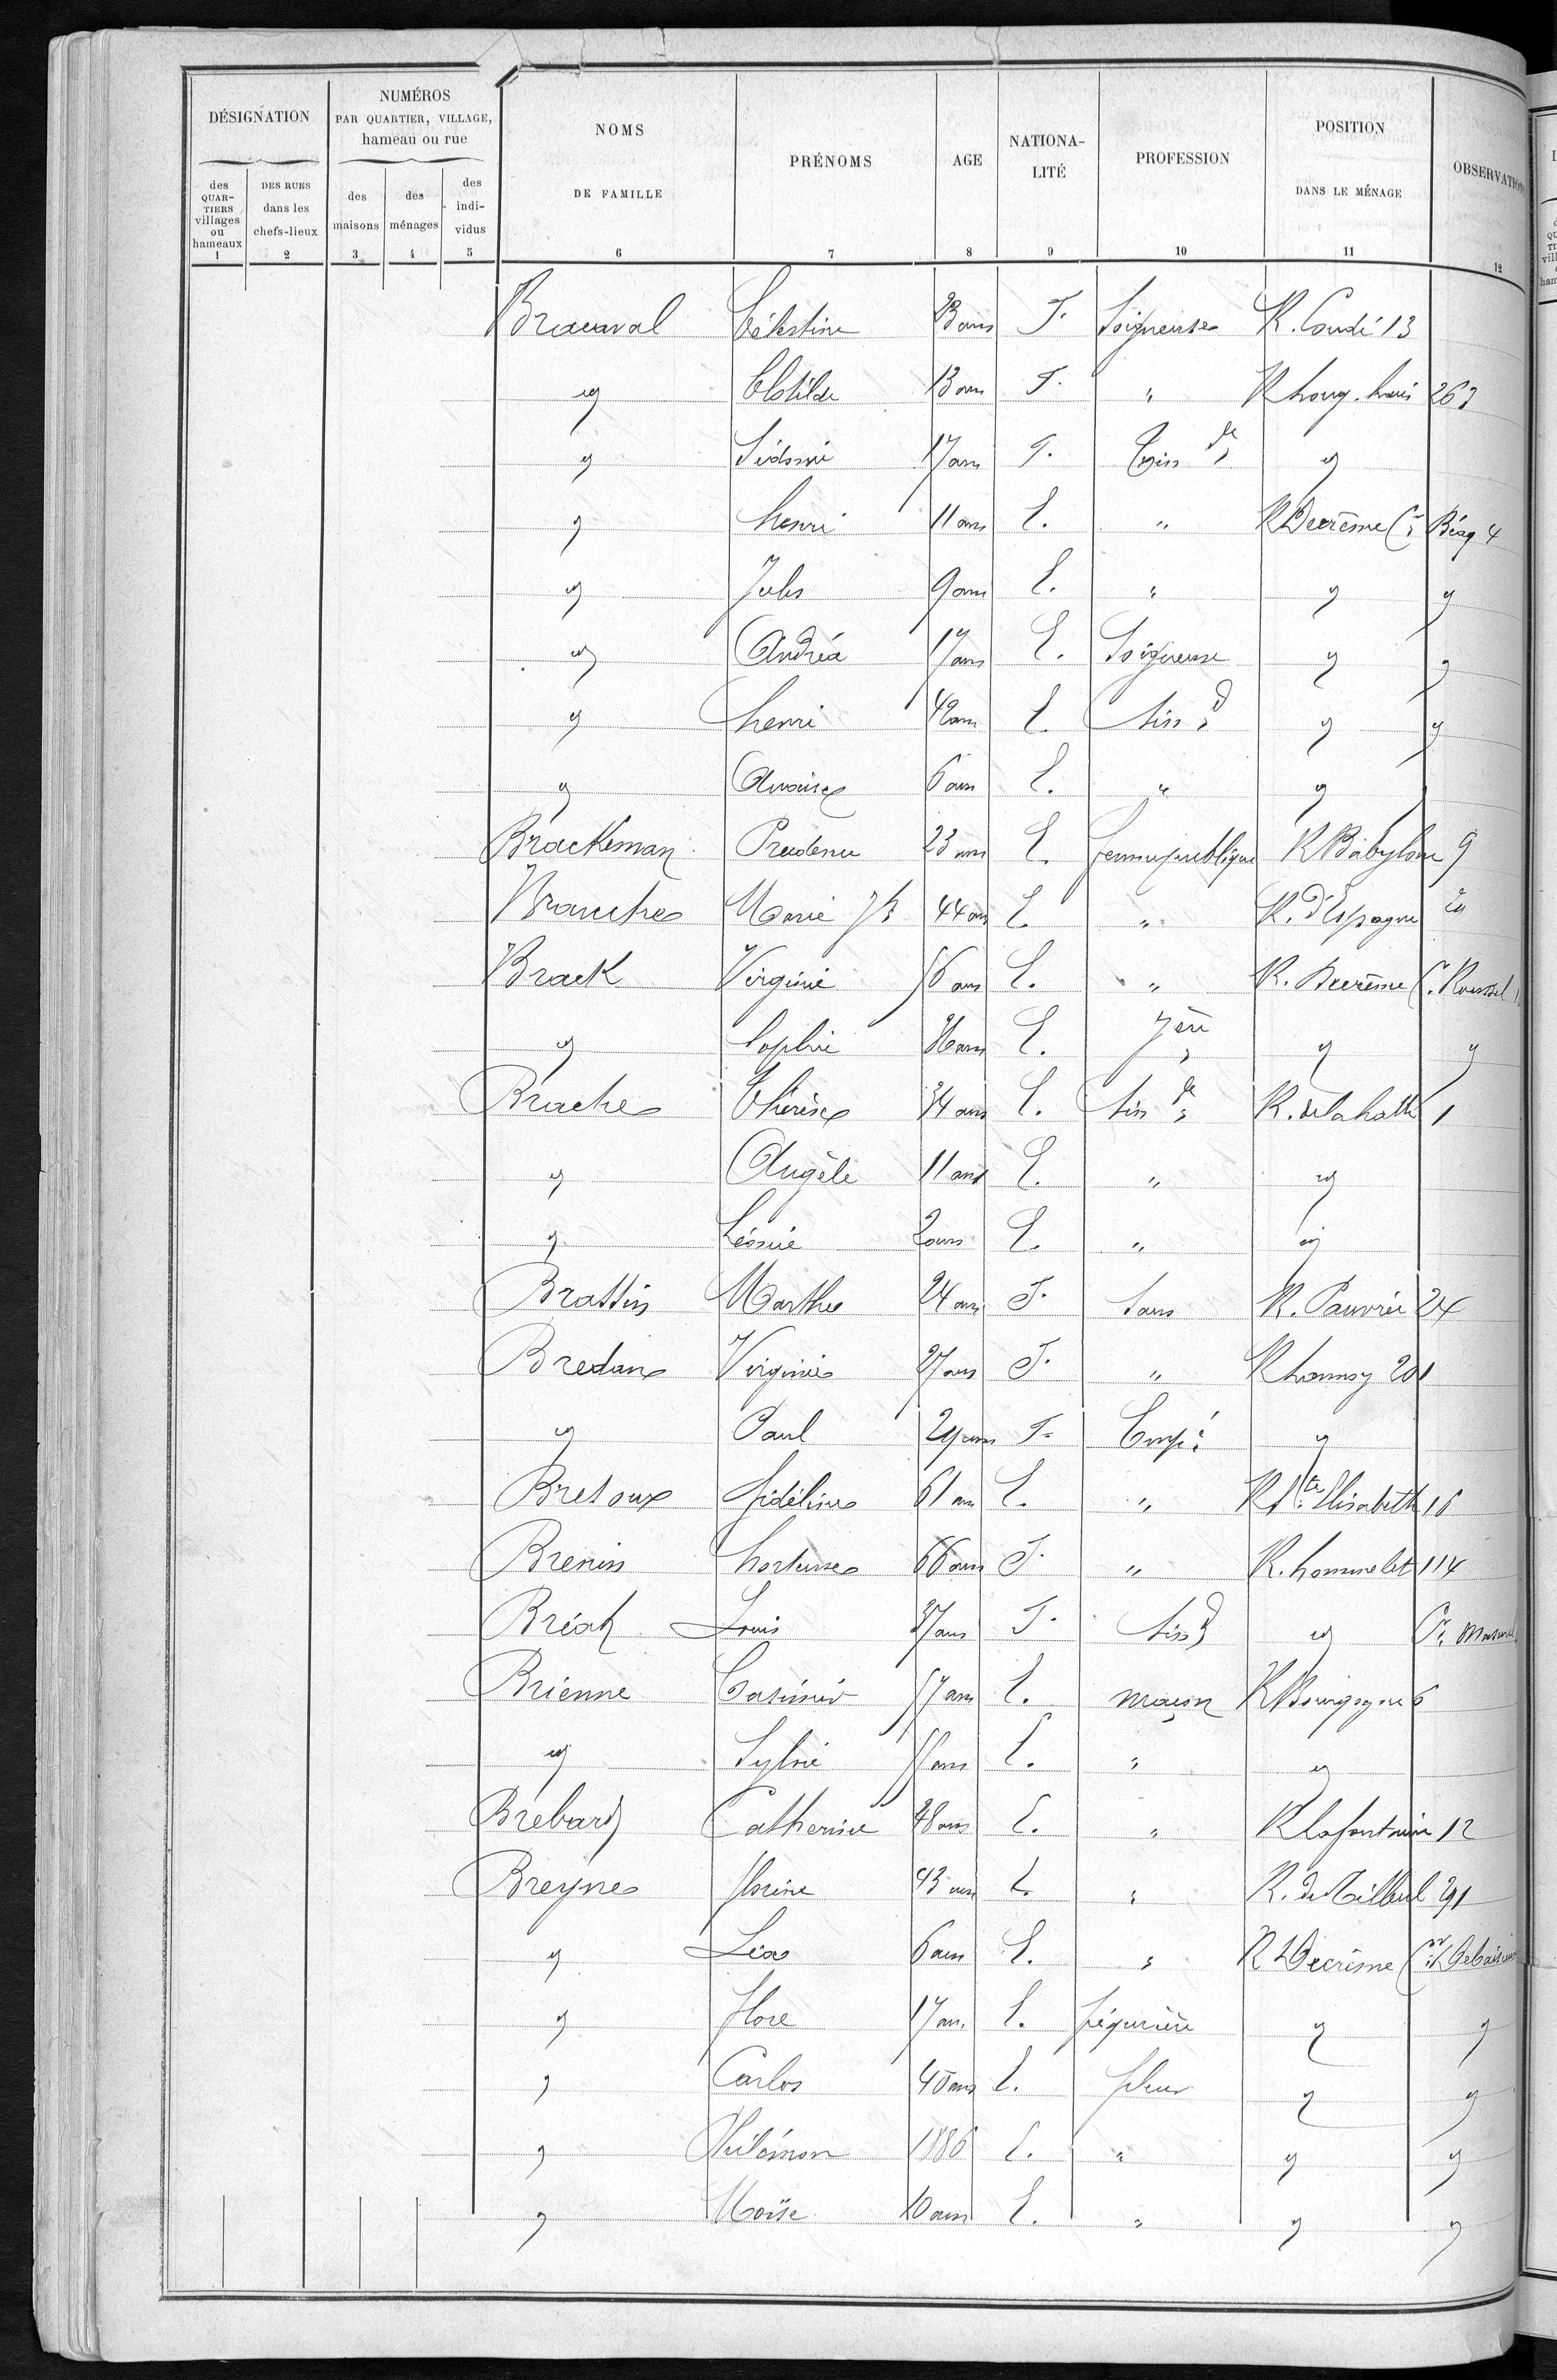 DÉSIGNATION
NUMÉROS
PAR QUARTIER, VILLAGE,
hameau ou rue
NOMS
DE FAMILLE
PRÉNOMS
AGE
NATIONA-
LITÉ
PROFESSION
POSITION
DANS LE MÉNAGE
OBSERVATION
des QUAR-TIERS villages ou hameaux
DES RUES dans les chefs-lieux
des maisons
des ménages
des indi-vidus
1 2 3 4 5 6 7 8 9 10 11 12
Brauaval Célestine 23 ans F. Soigneuse R. Condé 13
id Clotilde 13 ans F. " R 263
id Sidonie 17 ans F. de id
id henri 11 ans E. " R Decrême Cr Béag 4
id Jules 9 ans E. " id id
id Andréa 17 ans E. Soigneuse id id
id henri 42 ans E. tissd id id
id 6 ans E. " id
Brackeman Prudence 23 ans E. femme publique R Babylone 9
Branche Marie 44 ans E. " R. d'Espagne 20
Brack Virginie 56 ans E. " R. Decrême Cr. Roussel
id Sophie 36 ans E. jère id id
Brache Thérèse 34 ans E. tissde R. de la halle 1
id Angèle 11 ans E. " id
id Léonie 2 ans E. " id
Brattin Marthe 24 ans F. Sans R. Pauvrée 24
Bredane Virginie 27 ans F. " R 201
id Paul 29 ans F. Empé id
Bretoux fidéline 61 ans E. " R Ste Elisabeth 16
Brenin hortense 66 ans F. " R. hommelet 114
Louis 37 ans F. tissd id Cr. Masurel
Brienne Casimir 57 ans E. maçon R Bourgogne 6
id Sylvie ans E. " id
Brebard Catherine 48 ans E. " R Lafontaine 12
Breyne florine 43 ans E. " R. de Tilleul 291
id Léa 6 ans E. " R Decrême Cr
id flore 17 ans E. piqurière id id
id Carlos 40 ans E. fileur id id
id Philémon 1886 E. " id id
id Moïse 10 ans E. " id id